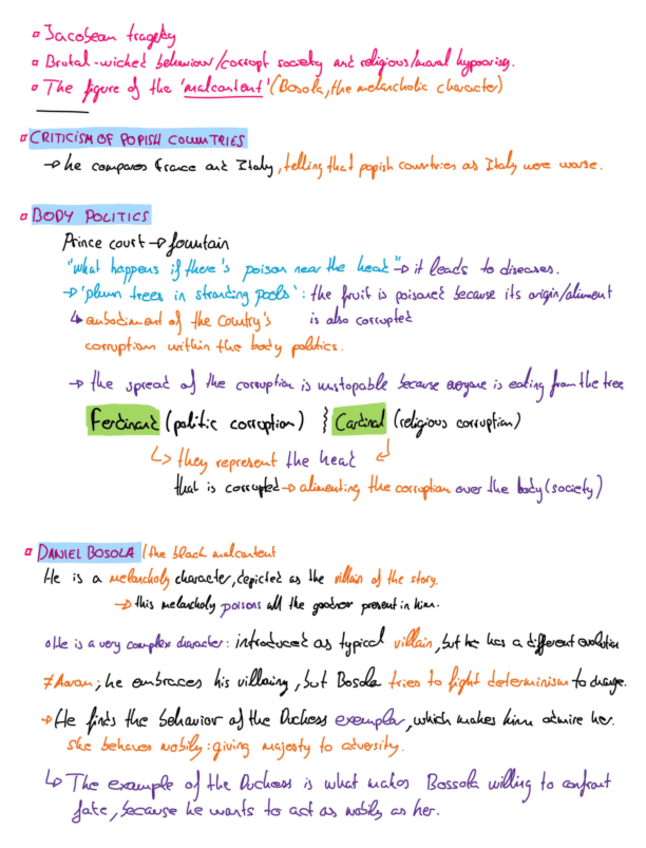 Jacobean tragedy
Brutal-wicked behaviour/corrupt society and religious/moral hypocrisy.
The figure of the 'malcontent' (Bosola, the melancholic character)
CRITICISM OF POPISH COUNTRIES
→ he compares France and Italy, telling that popish countries as Italy were worse.
BODY POLITICS
Prince court → fountain
"what happens if there's poison near the head" → it leads to diseases.
→ 'plum trees in standing pools': the fruit is poisoned because its origin/aliment
↳ embodiment of the country's is also corrupted
corruption within the body politics.
→ the spread of the corruption is unstopable because everyone is eating from the tree
Ferdinand (politic corruption) } Cardinal (religious corruption)
↳ they represent the head
that is corrupted → alimenting the corruption over the body (society)
DANIEL BOSOLA / the black malcontent
He is a melancholy character, depicted as the villain of the story.
→ this melancholy poisons all the goodness present in him.
He is a very complex character: introduced as typical villain, but he has a different evolution
≠ Aaron; he embraces his villainy, but Bosola tries to fight determinism to change.
→ He finds the behavior of the Duchess exemplar, which makes him admire her.
She behaves nobily: giving majesty to adversity.
↳ The example of the Duchess is what makes Bossola willing to confront
fate, because he wants to act as nobily as her.